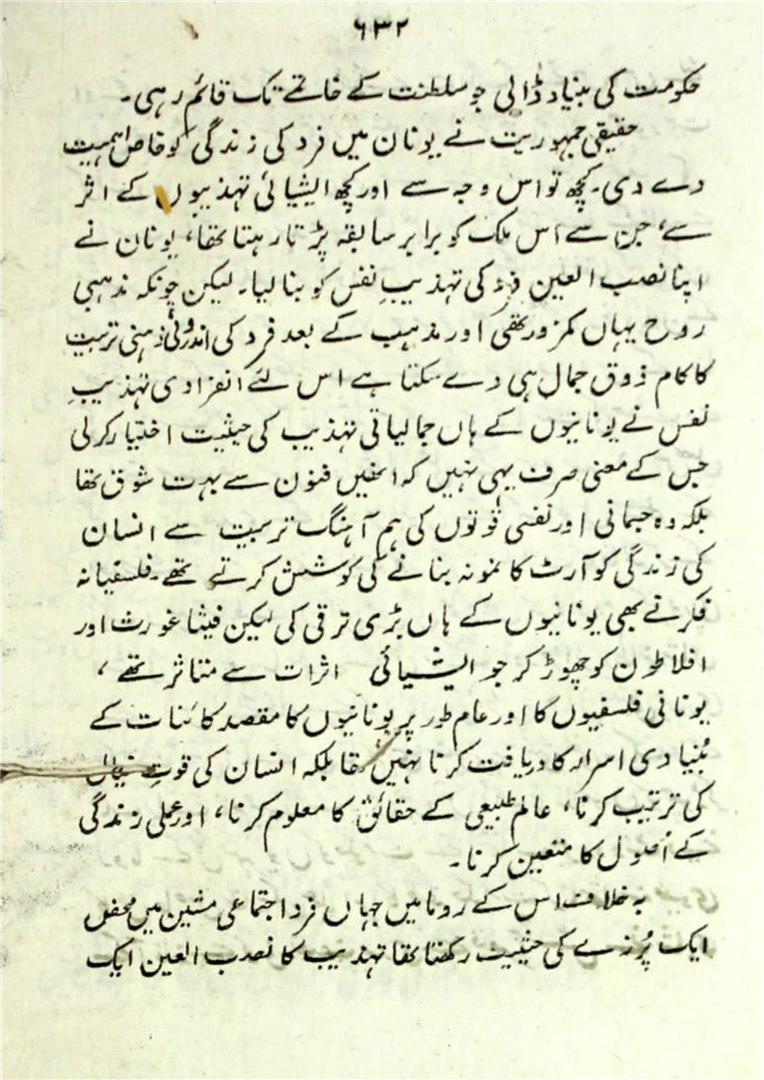 ۶۳۲
حکومت کی بنیاد ڈالی جو سلطنت کے خاتمے تک قائم رہی۔
حقیقی جمہوریت نے یونان میں فرد کی زندگی کو خاص اہمیت
دے دی۔ کچھ تو اس وجہ سے اور کچھ ایشیائی تہذیبوں کے اثر
سے، جن سے اس ملک کو برابر سابقہ پڑتا رہتا تھا، یونان نے
اپنا نصب العین فرد کی تہذیبِ نفس کو بنا لیا۔ لیکن چونکہ مذہبی
روح یہاں کمزور تھی اور مذہب کے بعد فرد کی اندرونی ذہنی تربیت
کا کام ذوق جمال ہی دے سکتا ہے اس لئے انفرادی تہذیبِ
نفس نے یونانیوں کے ہاں جمالیاتی تہذیب کی حیثیت اختیار کر لی
جس کے معنی صرف یہی نہیں کہ انھیں فنون سے بہت شوق تھا
بلکہ وہ جسمانی اور نفسی قوتوں کی ہم آہنگ تربیت سے انسان
کی زندگی کو آرٹ کا نمونہ بنانے کی کوشش کرتے تھے۔ فلسفیانہ
فکر نے بھی یونانیوں کے ہاں بڑی ترقی کی لیکن فیثا غورث اور
افلاطون کو چھوڑ کر جو ایشیائی اثرات سے متاثر تھے،
یونانی فلسفیوں کا اور عام طور پر یونانیوں کا مقصد کائنات کے
بُنیادی اسرار کا دریافت کرنا نہیں تھا بلکہ انسان کی قوتِ خیال
کی ترتیب کرنا، عالم طبیعی کے حقائق کا معلوم کرنا، اور عملی زندگی
کے اُصول کا متعین کرنا۔
بہ خلاف اس کے روما میں جہاں فرد اجتماعی مشین میں محض
ایک پُرزے کی حیثیت رکھتا تھا تہذیب کا نصب العین ایک